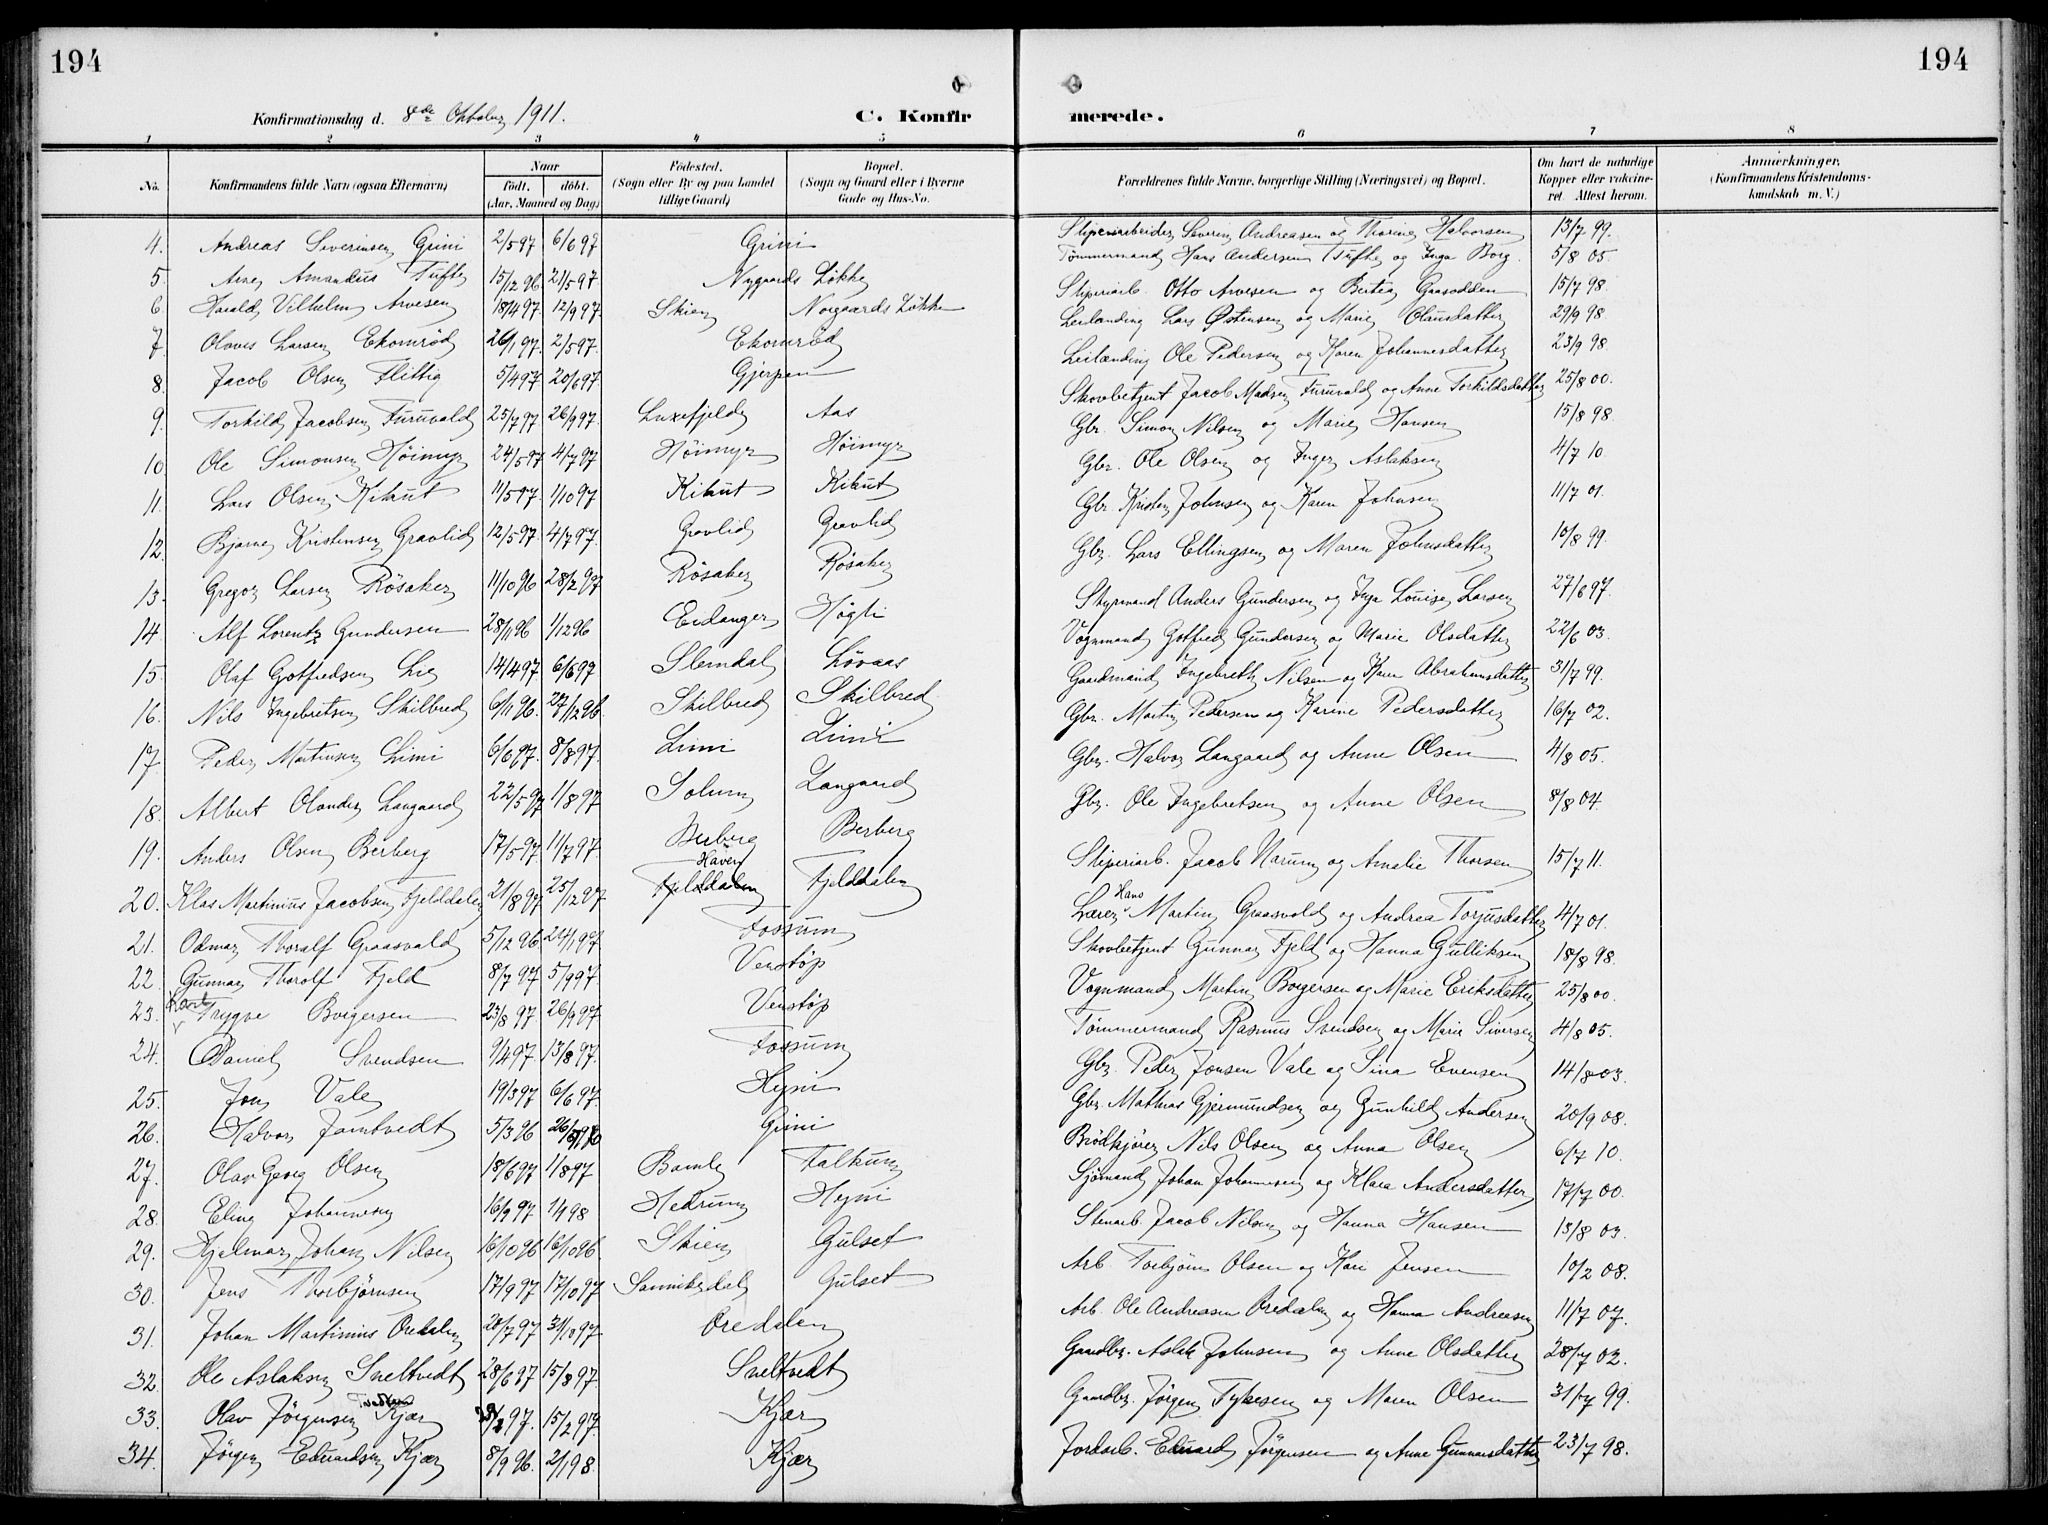 194
194
Konfirmationsdag d. 8de Oktober 1911.
C. Konfirmerede.
1 2 3 4 5 6 7 8
No. Konfirmandens fulde Navn (ogsaa Efternavn) Naar født. døbt. (Aar, Maaned og Dag) Fødested. (Sogn eller By og paa Landet tillige Gaard) Bopæl. (Sogn og Gaard eller i Byerne Gade og Hus-No. Forældrenes fulde Navne, borgerlige Stilling (Næringsvei) og Bopæl. Om havt de naturlige Kopper eller vakcineret. Attest herom. Anmærkninger. (Konfirmandens Kristendomskundskab m. V.)
4. Andreas Severinsen Grini 2/5 97 6/6 97 Grini Sliperiarbeider Severin Andreasen og Thorine Halvorsen 13/7 99.
5. Arne Amandus Tufte 15/12 96 21/5 97 Nygaards Løkke Tømmermand Hans Andersen Tufte og Inga Borg. 5/8 05.
6. Harald Vilhelm Arvesen 18/4 97 12/9 97. Skien Norgaards Løkke Sliperiarb. Otto Arvesen og Bertea Gaasodden 15/7 98.
7. Olavis Larsen Ekornrød 26/1 97. 2/5 97. Ekornrød Leilænding Lars Østensen og Marie Clausdatter 29/9 98
8. Jacob Olsen Flittig 5/4 97 20/6 97. Gjerpen Leilænding Ole Pedersen og Karen Johannesdatter 23/9 98.
9. Torkild Jacobsen Furuvald 25/7 97 26/9 97. Luxefjeld Aas Skovbetjent Jacob Madsen Furuvald og Anne Torkildsdatter 25/8 00.
10. Ole Simonsen Høimyr 24/5 97 4/7 97 Høimyr Høimyr Gbr. Simon Nilsen og Marie Hansen 15/8 98.
11. Lars Olsen Kikut 11/5 97. 1/10 97 Kikut Kikut Gbr. Ole Olsen og Inger Aslaksen 4/7 10.
12. Bjarne Kristensen Gravlid 12/5 97 4/7 97. Gravlid Gravlid Gbr. Kristen Johnsen og Karen Johnsen 11/7 01.
13. Gregor Larsen Røsaker 11/10 96 28/2 97 Røsaker Røsaker Gbr. Lars Ellingsen og Maren Johnsdatter 10/8 99.
14 Alf Lorentz Gundersen 28/1 96 1/12 96 Eidanger Høgli Styrmand Anders Gundersen og Inga Louise Larsen 27/6 97.
15. Olaf Gotfredsen Lie 14/4 97 6/6 97 Slemdal Løvaas Vognmand Gotfred Gundersen og Marie Olsdatter 22/6 03.
16. Nils Ingebretsen Skilbred 6/11 96. 27/12 96. Skilbred Skilbred Gaardmand Ingebreth Nilsen og Karen Abrahamsdatter 31/7 99.
17 Peder Martinsen Limi 6/6 97. 8/8 97. Limi Limi Gbr. Martin Pedersen og Karine Pedersdatter 16/7 02.
18. Albert Olander Langaard 22/5 97 1/8 97 Solum Langaard Gbr. Halvor Langaard og Anne Olsen 4/8 05.
19. Anders Olsen Berberg 17/5 97 11/7 97. Berberg Berberg Gbr. Ole Ingebretsen og Anne Olsen 8/8 04.
20. Klas Martinius Jacobsen Fjelddalen 21/8 97 25/12 97 Haven Fjelddalen Fjelddalen Sliperiarb. Jacob Narum og Amalie Thorsen 15/7 11.
21. Odmar Thoralf Graasvold 5/12 96 24/1 97 Fossum Lærer Hans Martin Graasvold og Andrea Torjusdatter 4/7 01.
22. Gunnar Thorolf Fjeld 8/7 97 5/9 97 Venstøp Skovbetjent Gunnar Fjeld og Hanna Gulliksen 18/8 98.
23. Trygve Borgersen 23/8 97. 26/9 97 Venstøp Vognmand Martin Borgersen og Marie Eriksdatter 25/8 00.
24. Daniel Svendsen 9/4 97. 13/8 97. Fossum Tømmermand Rasmus Svendsen og Marie Siversen 4/8 05.
25. Jon Vale 19/3 97 6/6 97. Heyni Gbr. Peder Jonsen Vale og Sina Evensen 14/8 03.
26. Halvor Jomtvedt 5/3 96 Grini Gbr. Mathias Gjermundsen og Gunhild Andersen 20/9 08.
27. Olav Georg Olsen 18/6 97 1/8 97 Bamle Falkum Brødkjører Nils Olsen og Anna Olsen 6/7 10.
28. Eling Johannesen 16/9 97 1/1 98 Hedrum Heyni Sjømand Johan Johannesen og Klara Andersdatter 17/7 00.
29. Hjalmar Johan Nilsen 16/10 96 16/10 96 Skien Gulset Stenarb. Jacob Nilsen og Hanna Hansen 13/8 03.
30. Jens Thorbjørnsen 17/9 97 17/10 97 Sannikedal Gulset Arb. Torbjørn Olsen og Kari Jensen 10/2 08.
31. Johan Martinius Oredalen 20/7 97 31/10 97. Oredalen Arb. Ole Andreassen Oredalen og Hanna Andreasen 11/7 07.
32. Ole Aslaksen Sneltvedt 28/6 97 15/8 97. Sneltvedt Gaardbr. Aslak Johnsen og Anne Olsdatter 28/7 02.
33. Olav Jørgensen Kjær 97. 15/2 97 Kjær Gaardbr. Jørgen Tykesen og Maren Olsen 31/7 99.
34. Jørgen Eduardsen Kjær 8/9 96. 2/1 98. Kjær Jordarb. Eduard Jørgensen og Anne Gunnarsdatter 23/7 98.